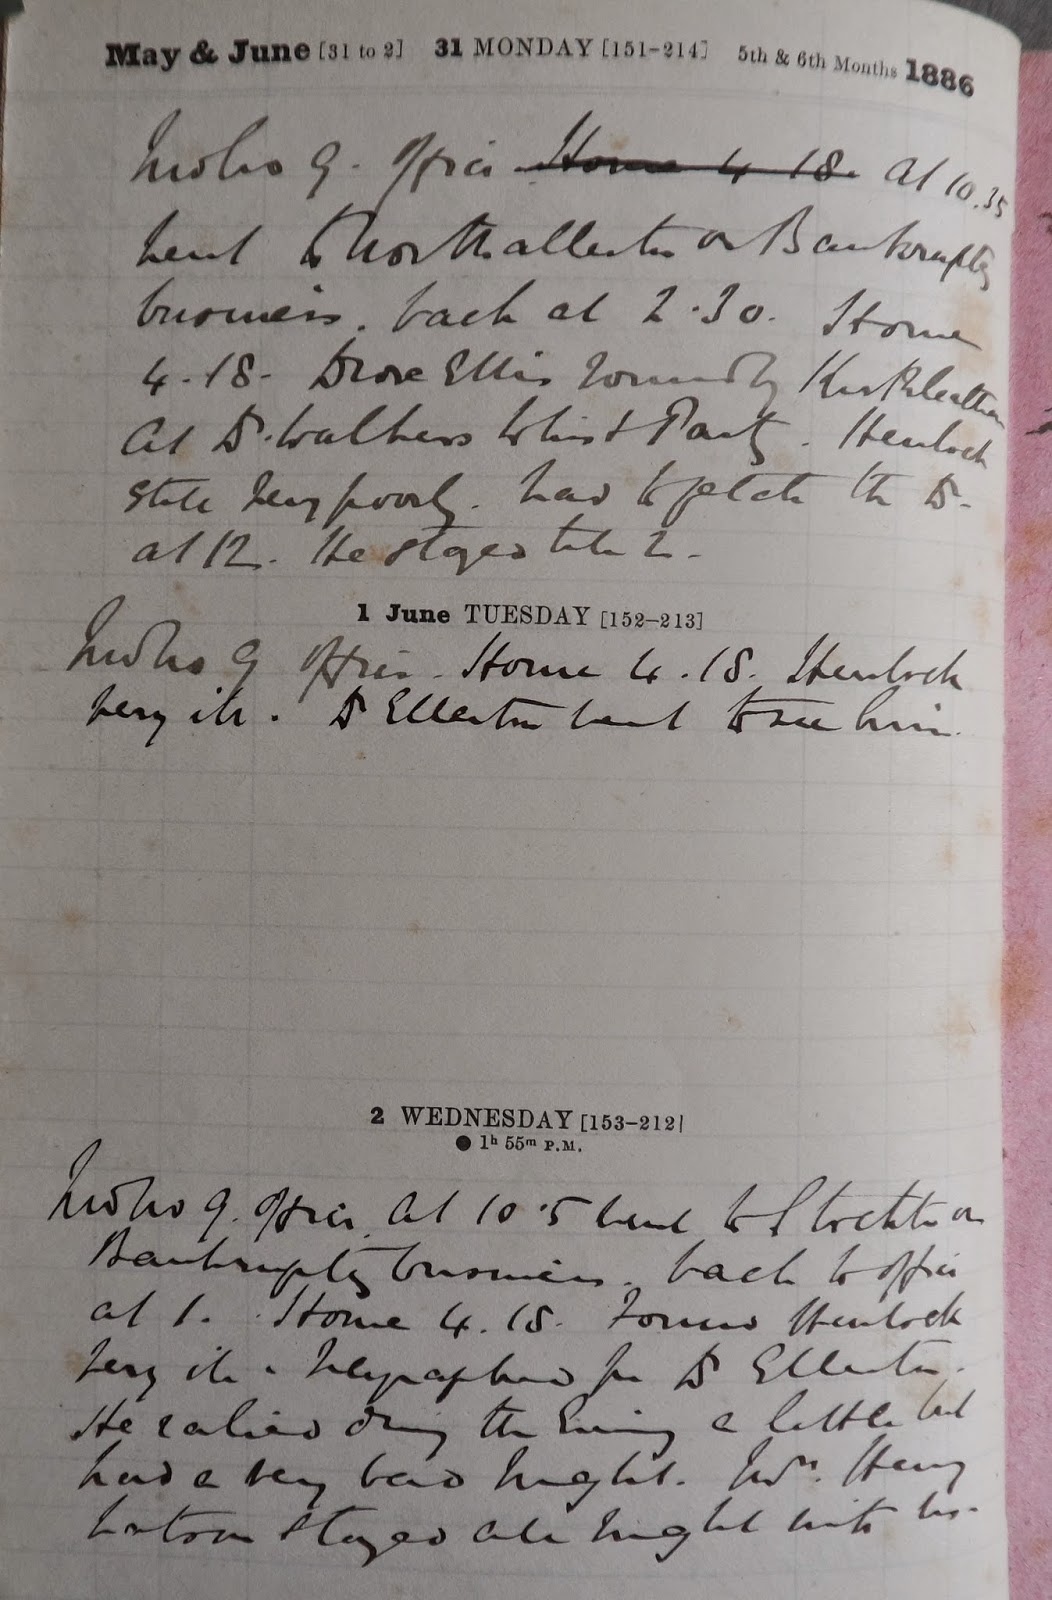 May & June [31 to 2] 31 MONDAY [151-214] 5th & 6th Months 1886
9. Office Home 4 18. At 10.35
went to Northallerton on Bankruptcy
business. back at 2.30. Home
4.18. Drove Ellis round by Kirkleatham
At Dr. Walkers Whist Party. Henlock
still very poorly. had to fetch the Dr.
at 12. He stayed till 2.
1 June TUESDAY [152-213]
9 Office. Home 4.18. Henlock
very ill. Dr Ellerton went to see him.
2 WEDNESDAY [153-212]
● 1h 55m P.M.
9. Office. At 10.5 went to Stockton on
Bankruptcy business. back to office
at 1. Home 4.18. Found Henlock
very ill. Telegraphed for Dr Ellerton.
He rallied during the Evening a little but
had a very bad night. Mrs. Henry
Watson stayed all night with us.